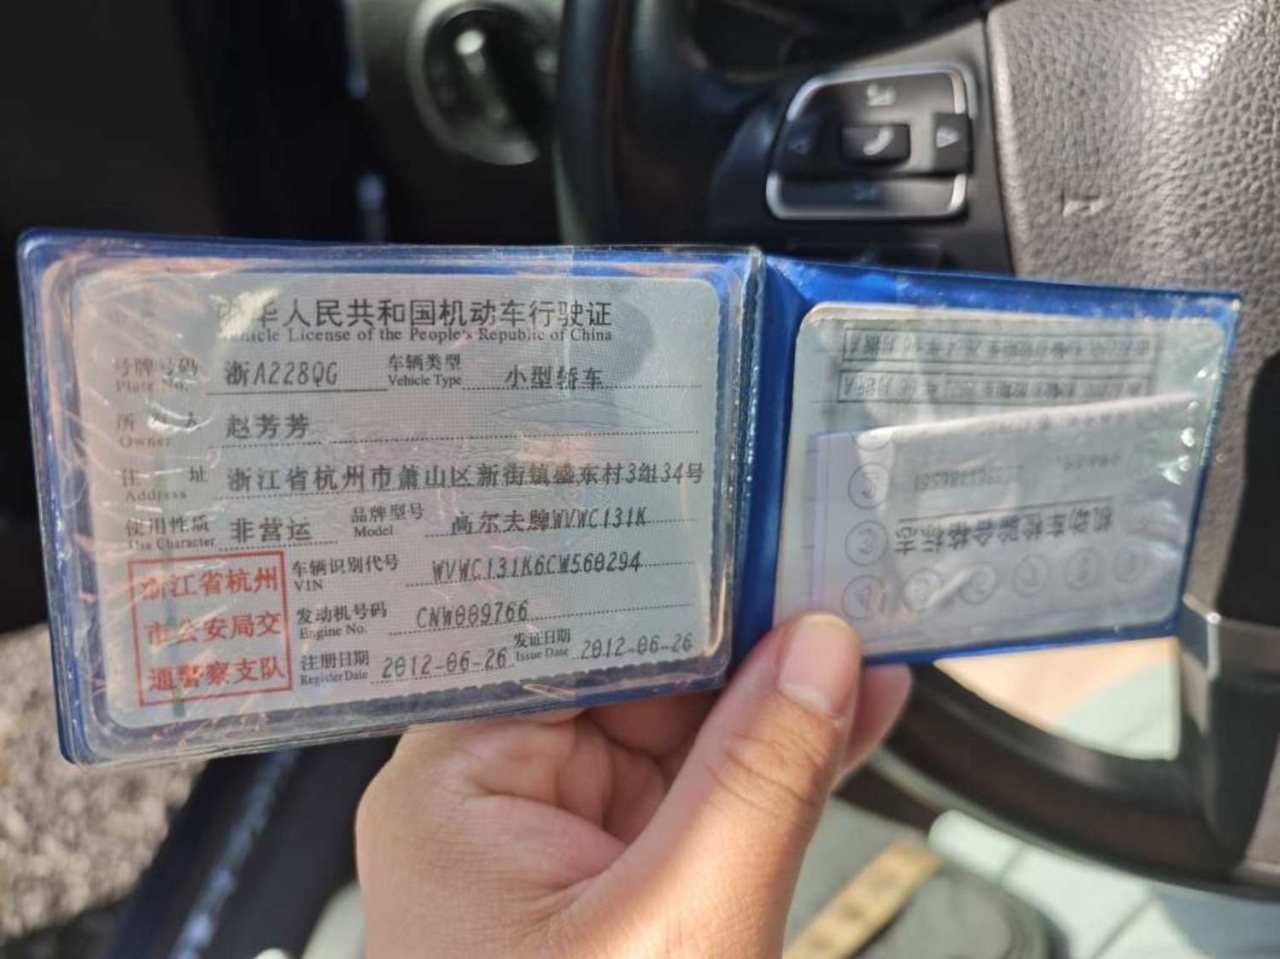 中华人民共和国机动车行驶证
Vehicle License of the People's Republic of China
号牌号码 浙A228QG 车辆类型 小型轿车
Plate No. Vehicle Type
所有人 赵芳芳
Owner
住址 浙江省杭州市萧山区新街镇盛东村3组34号
Address
使用性质 非营运 品牌型号 高尔夫牌WVWC131K
Use Character Model
浙江省杭州
市公安局交
通警察支队
车辆识别代号 WVWC131K6CW560294
VIN
发动机号码 CNW009766
Engine No.
注册日期 2012-06-26 发证日期 2012-06-26
Register Date Issue Date
机动车检验合格标志